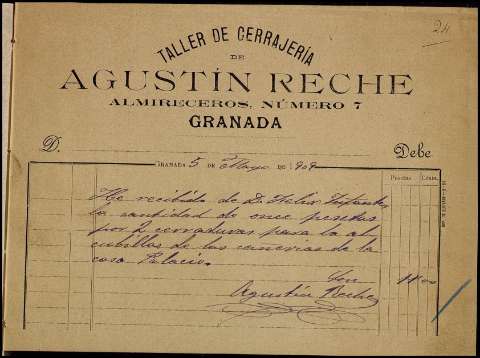 24
TALLER DE CERRAJERÍA
DE
AGUSTÍN RECHE
ALMIRECEROS, NÚMERO 7
GRANADA
D. Debe
GRANADA 5 DE Mayo DE 1909
Pesetas Cénts.
He recibido de D. Felix Infantes
la cantidad de once pesetas
por 2 cerraduras para la al
cubillas de las cañerias de la
casa Palacio.
Son 11 00
Agustín Reche